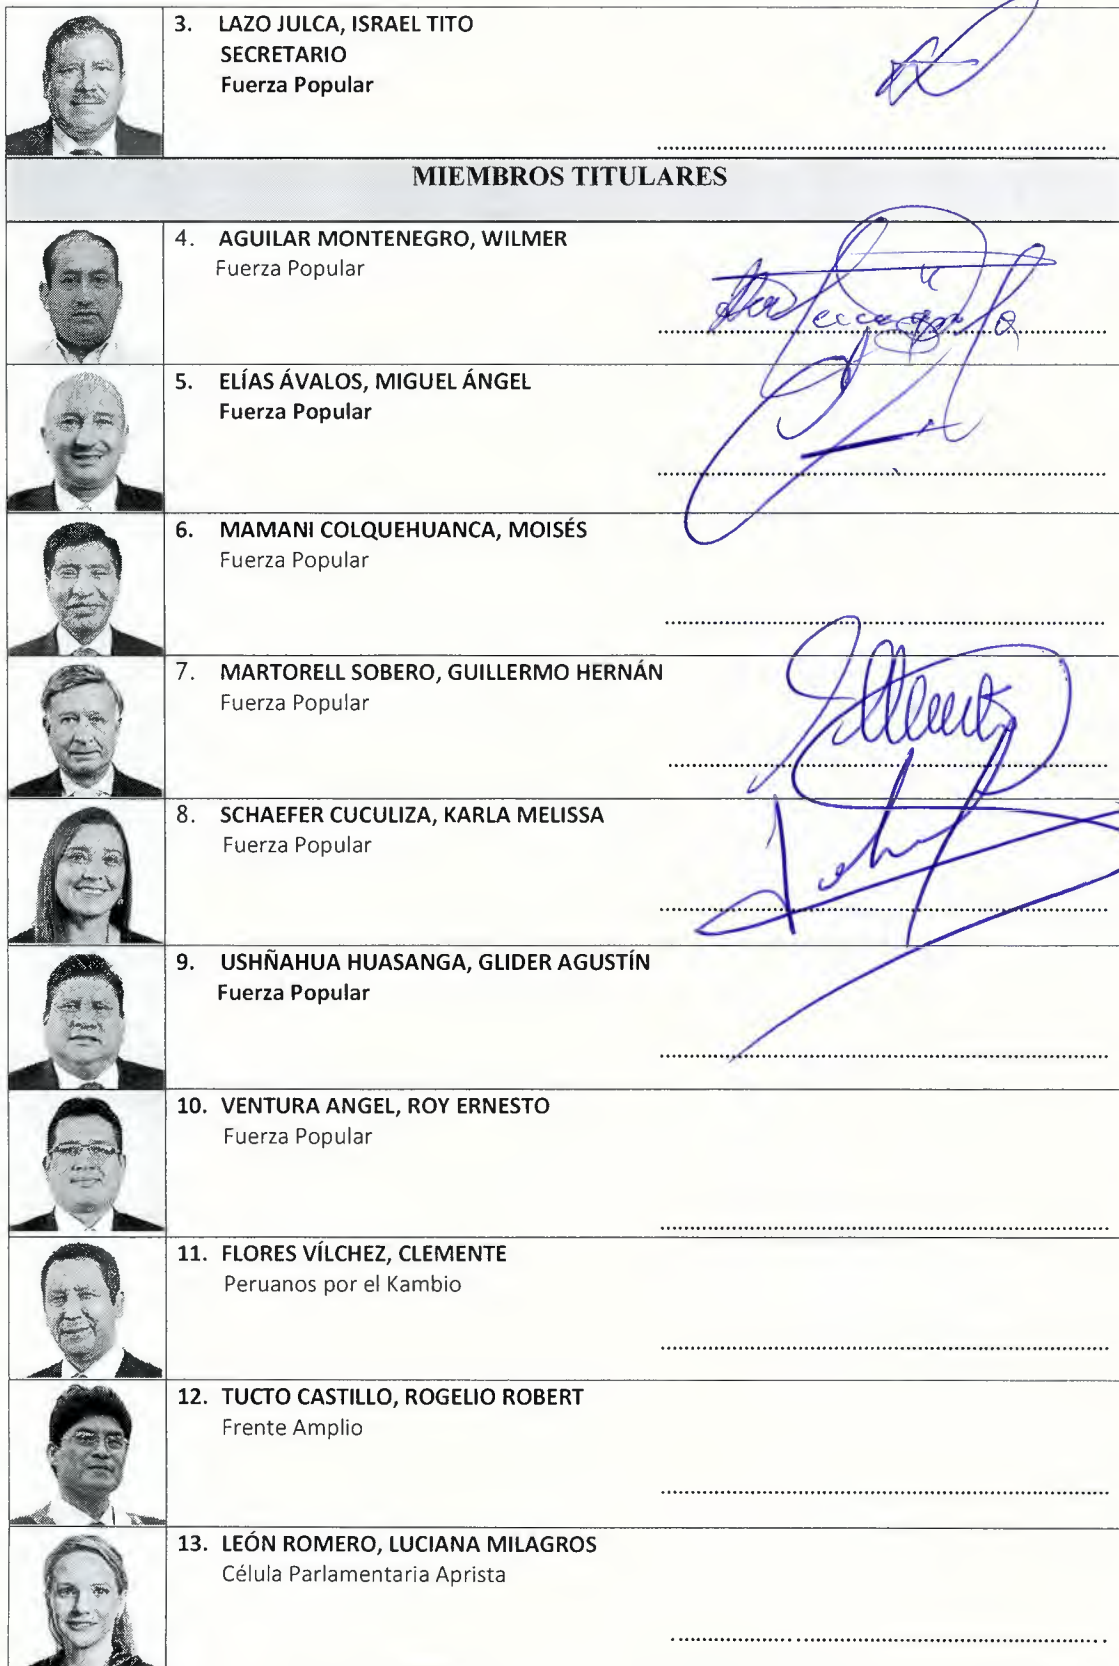 3. LAZO JULCA, ISRAEL TITO
SECRETARIO
Fuerza Popular
MIEMBROS TITULARES
4. AGUILAR MONTENEGRO, WILMER
Fuerza Popular
5. ELÍAS ÁVALOS, MIGUEL ÁNGEL
Fuerza Popular
6. MAMANI COLQUEHUANCA, MOISÉS
Fuerza Popular
7. MARTORELL SOBERO, GUILLERMO HERNÁN
Fuerza Popular
8. SCHAEFER CUCULIZA, KARLA MELISSA
Fuerza Popular
9. USHÑAHUA HUASANGA, GLIDER AGUSTÍN
Fuerza Popular
10. VENTURA ANGEL, ROY ERNESTO
Fuerza Popular
11. FLORES VÍLCHEZ, CLEMENTE
Peruanos por el Kambio
12. TUCTO CASTILLO, ROGELIO ROBERT
Frente Amplio
13. LEÓN ROMERO, LUCIANA MILAGROS
Célula Parlamentaria Aprista